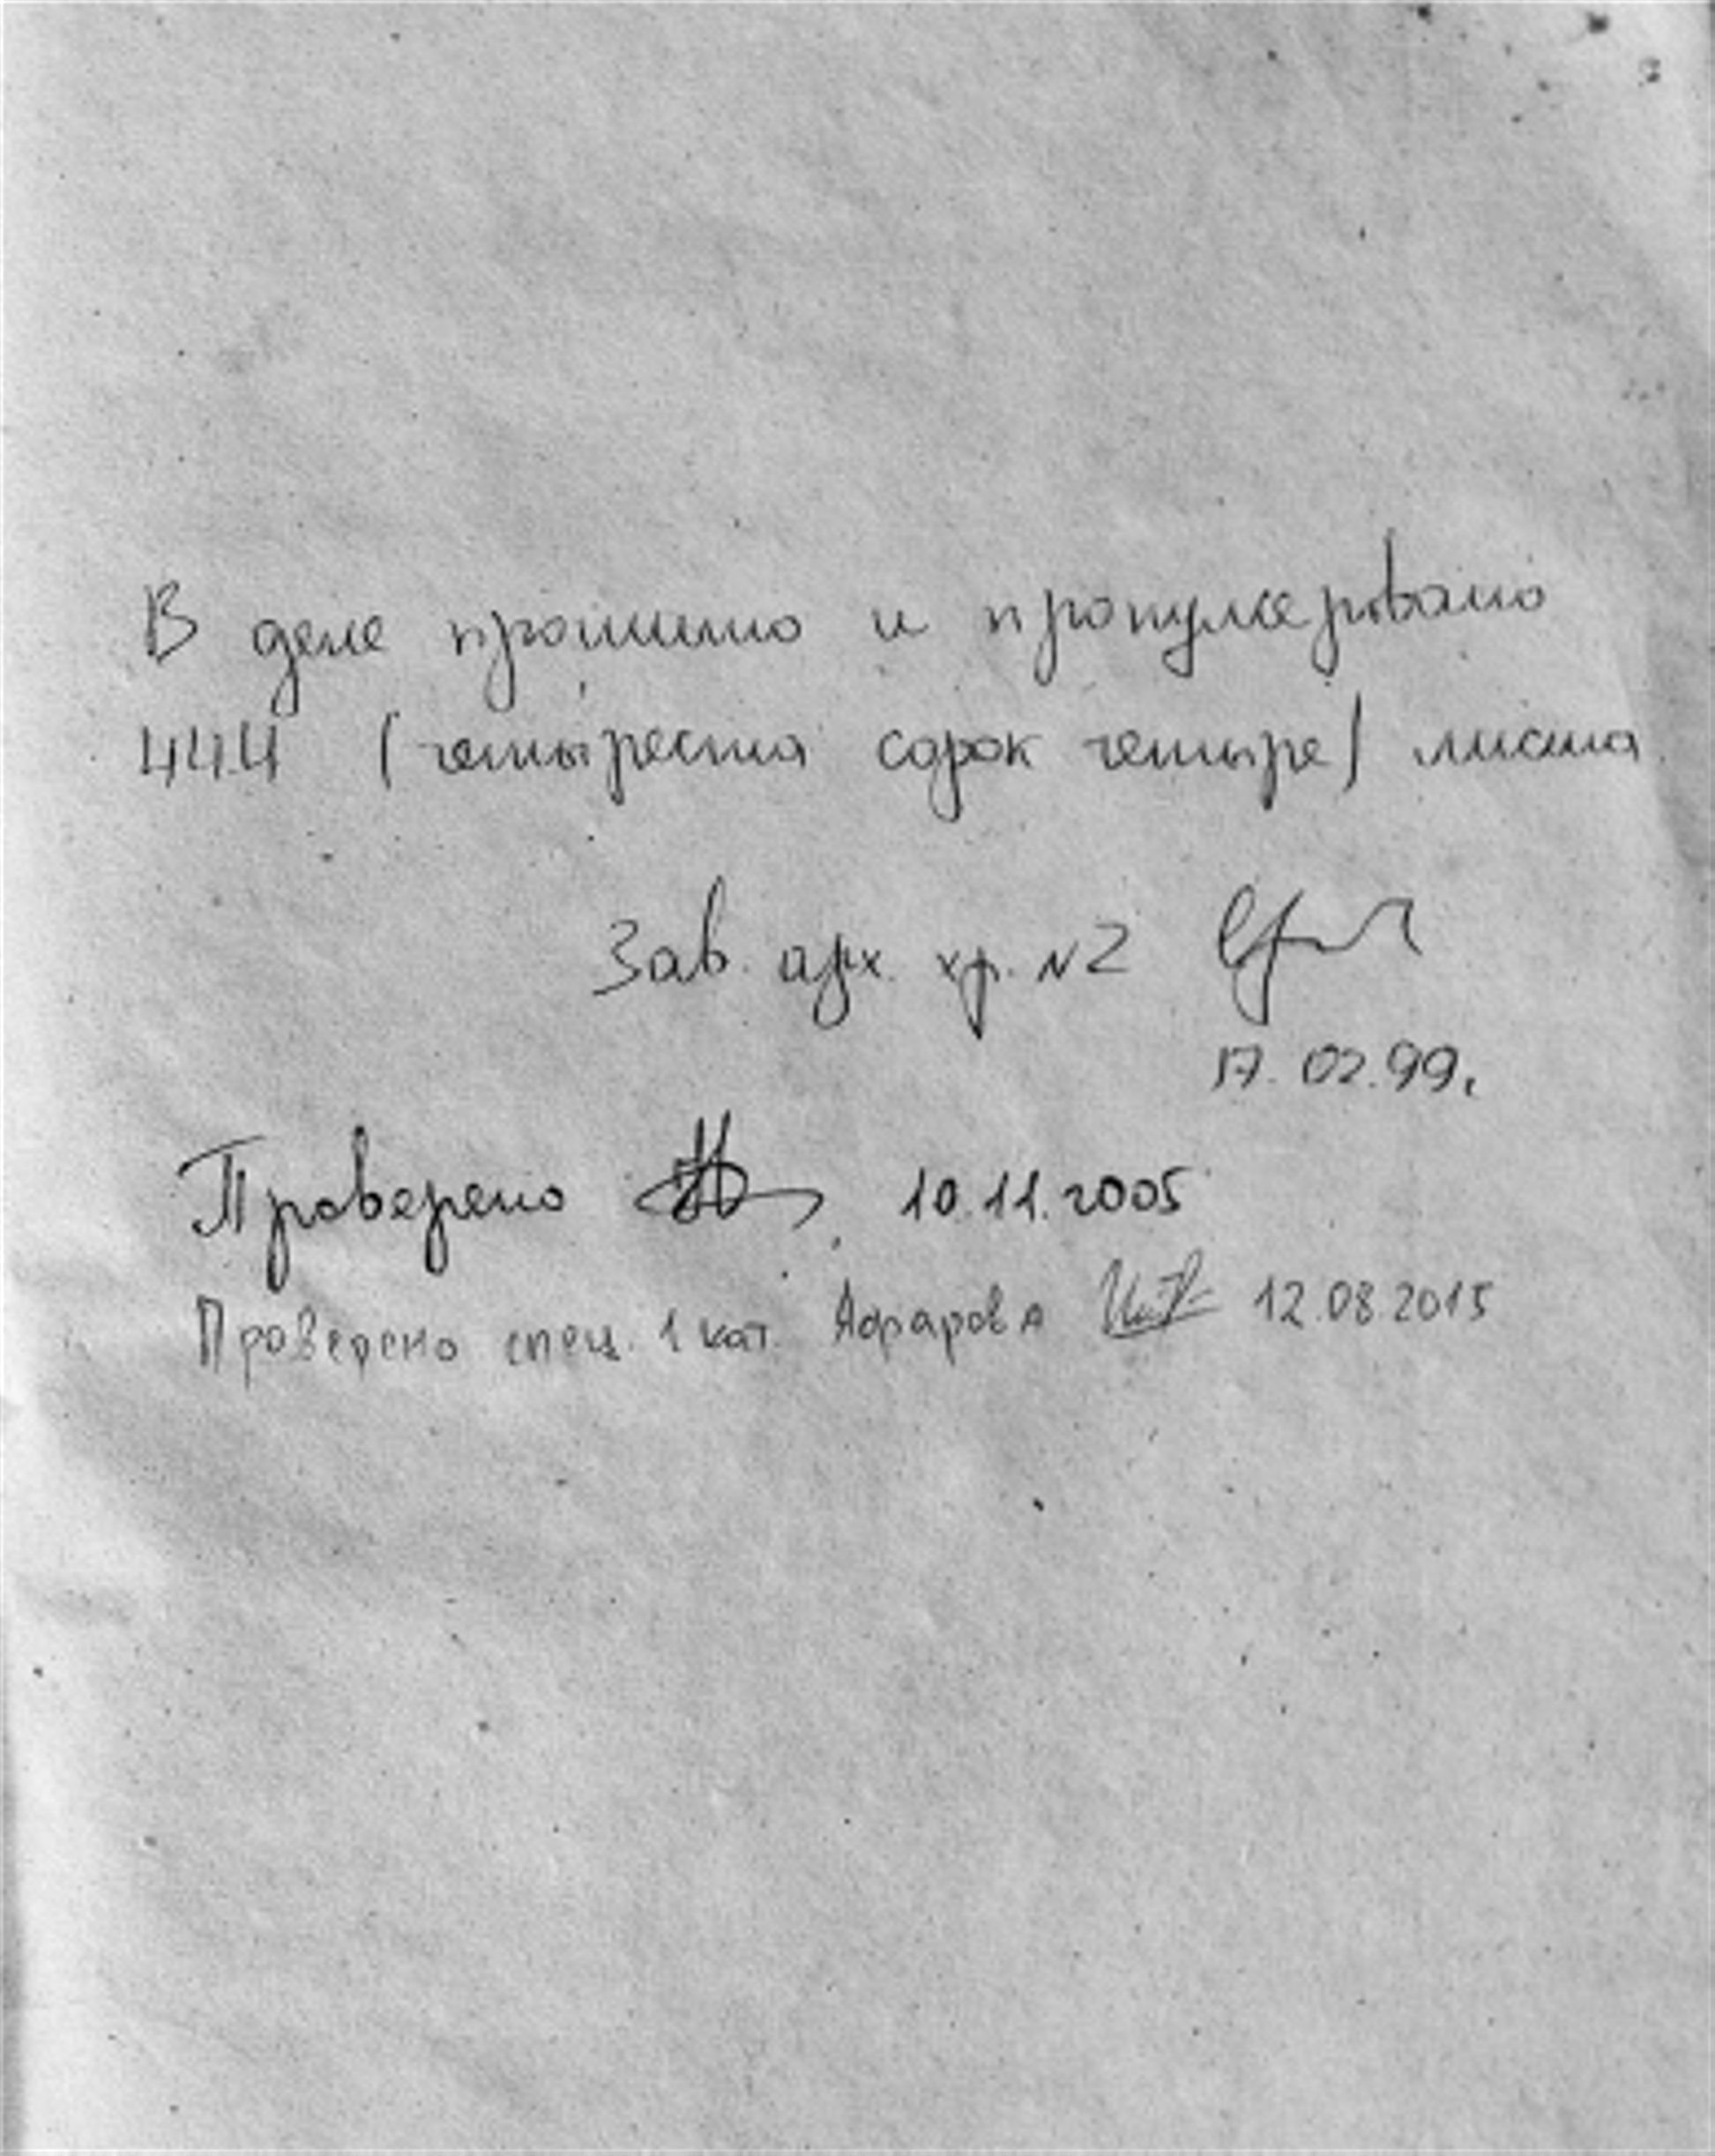 В деле прошито и пронумеровано
444 (четыреста сорок четыре) листа.
Зав. арх. хр. N2
17.02.99.
Проверено 10.11.2005
Проверено спец. 1 кат. 12.08.2015